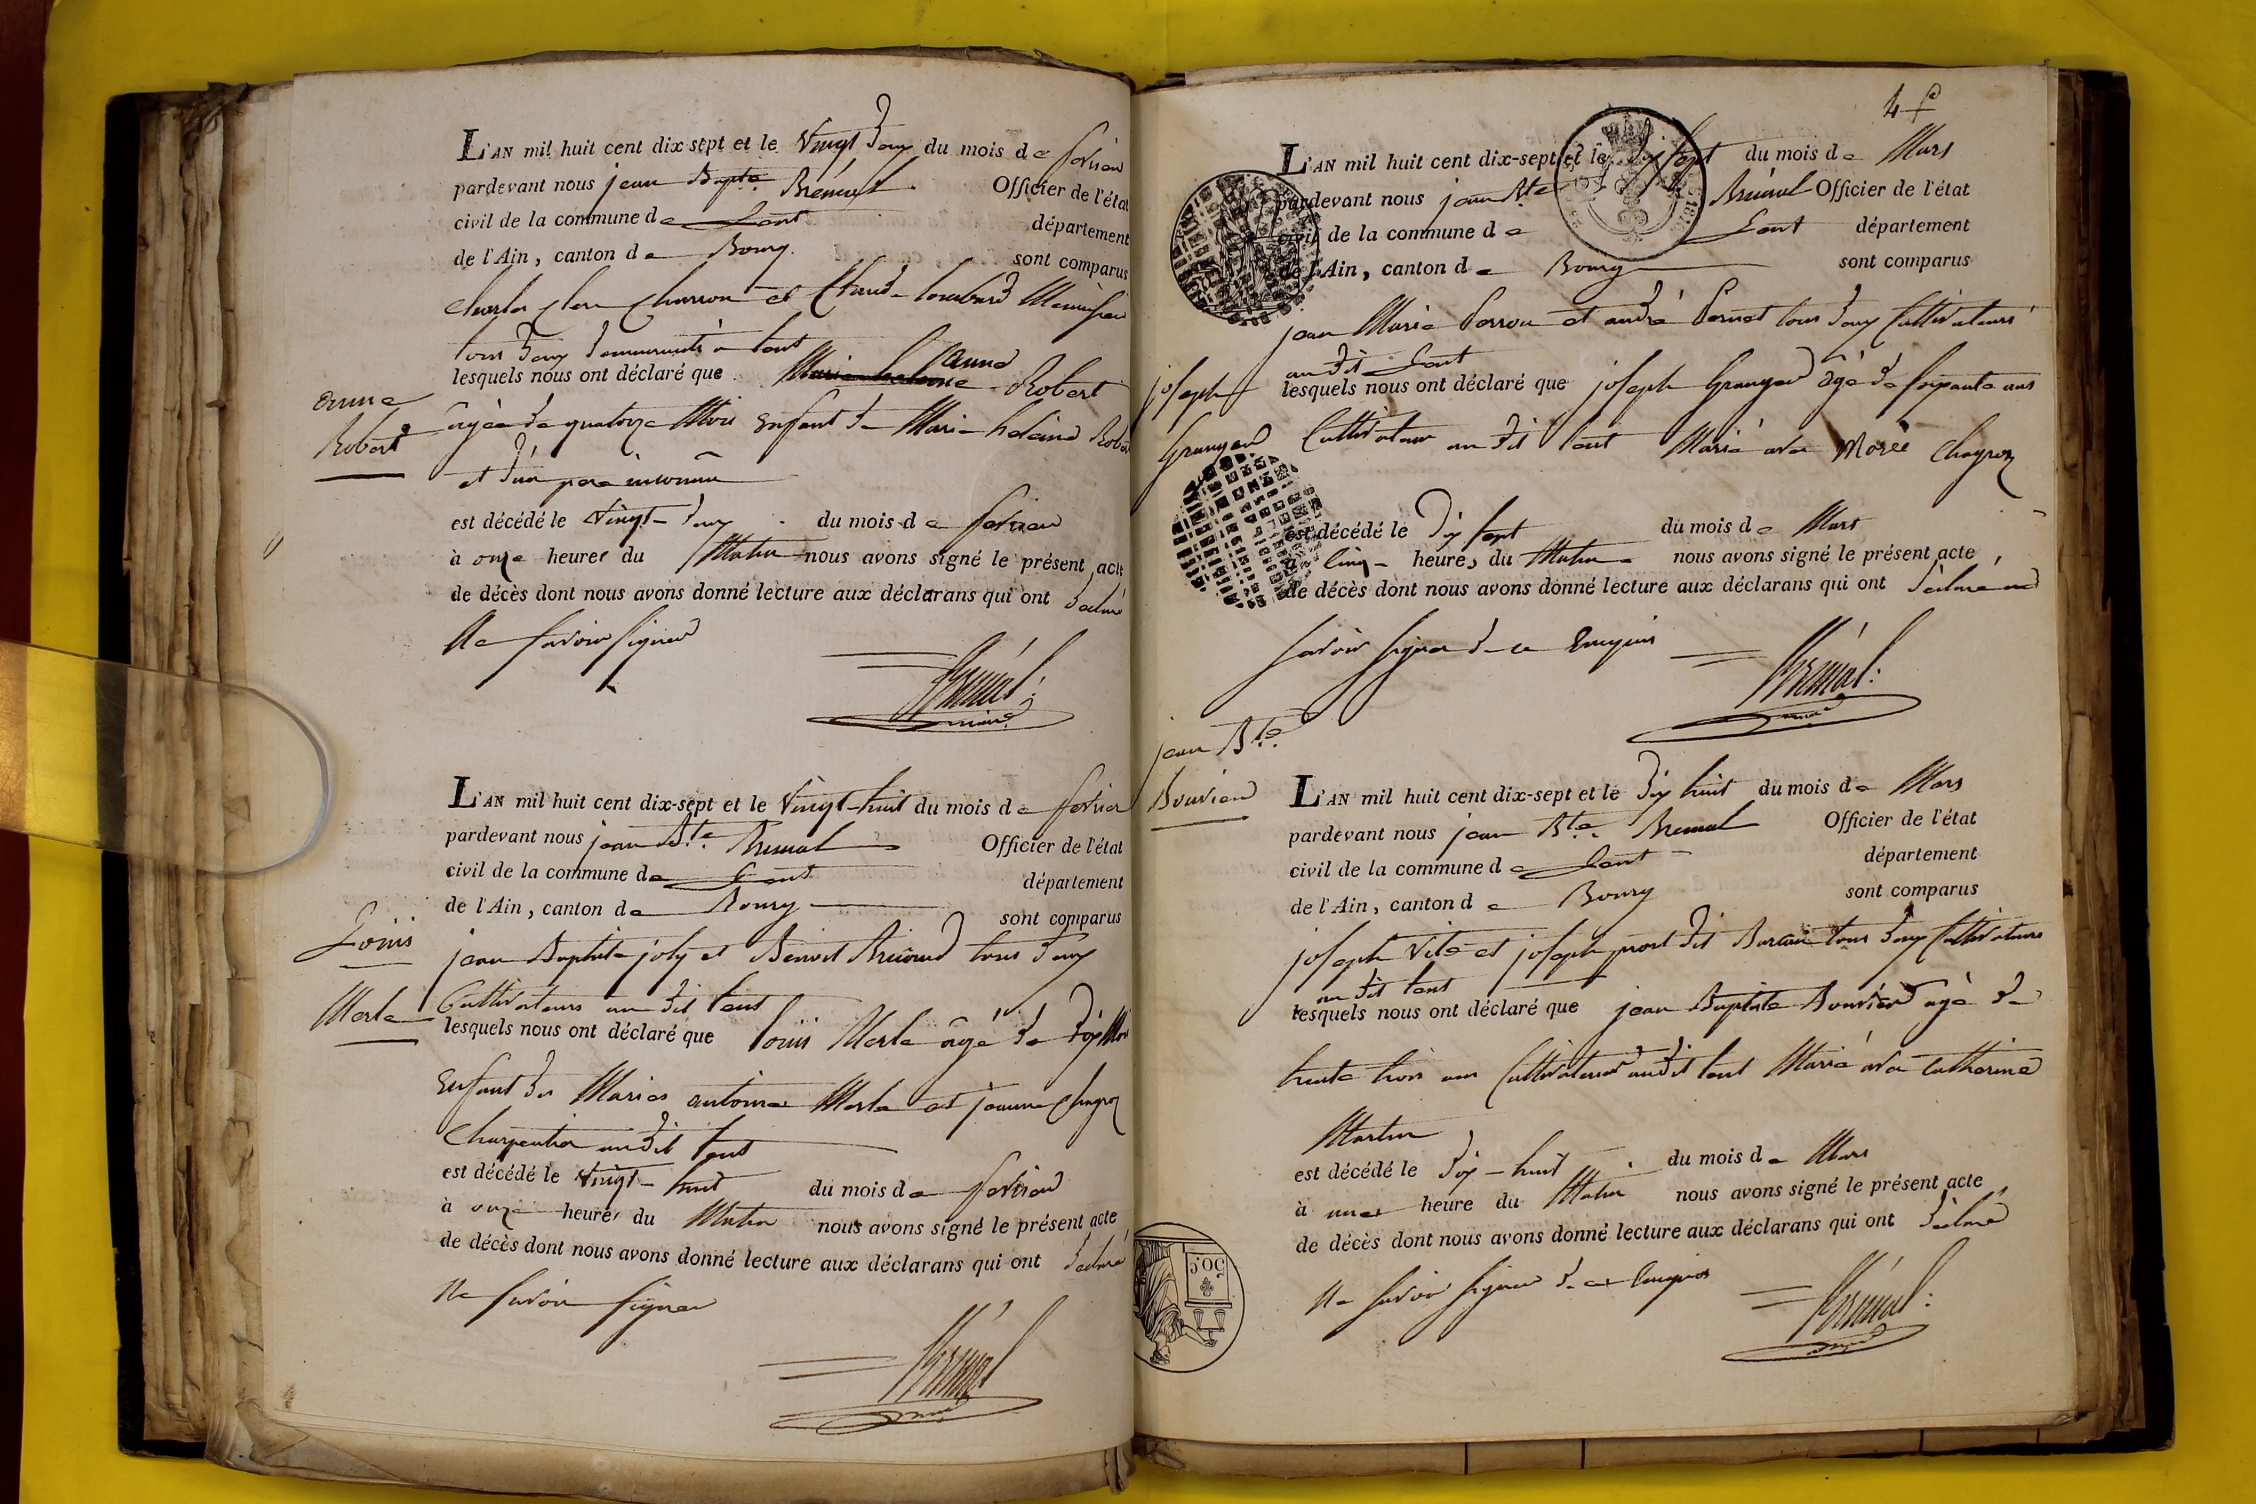 L'AN mil huit cent dix-sept et le Vingt Deux du mois de fevrier
pardevant nous jean Bapte. Bréna Officier de l'état
civil de la commune de Lent département
de l'Ain, canton de Bourg sont comparus
Charles Charron et Claude lombard Menuisier
tous Deux Demeurants a lent
anne
lesquels nous ont déclaré que Marie helene Robert
anne
Robert
agée de quatorze Mois Enfant de Marie helene Robert
et D'un pere inconnu
est décédé le Vingt-Deux du mois de fevrier
à onze heures du Matin nous avons signé le présent acte
de décès dont nous avons donné lecture aux déclarans qui ont Declaré
Ne savoir signer
L'AN mil huit cent dix-sept et le Vingt-huit du mois de fevrier
pardevant nous jean Bte. Officier de l'état
civil de la commune de Lent département
de l'Ain, canton de Bourg sont comparus
Louis
Merle
jean Baptiste joly et Benoit tous Deux
Cultivateurs au Dit lent
lesquels nous ont déclaré que louis Merle agé de Dix Mois
Enfant Des Maries antoine Merle et jeanne
Charpentier au Dit lent
est décédé le Vingt-huit du mois de fevrier
à onze heures du Matin nous avons signé le présent acte
de décès dont nous avons donné lecture aux déclarans qui ont Declaré
Ne savoir signer
4 fe
L'AN mil huit cent dix-sept et le Dix sept du mois de Mars
pardevant nous jean Bte Officier de l'état
civil de la commune de Lent département
de l'Ain, canton de Bourg sont comparus
jean Marie Perron et andré Pernet tous Deux Cultivateurs
au Dit Lent
lesquels nous ont déclaré que joseph Granger âgé de soixante ans
joseph
Granger
Cultivateur au Dit lent Marié avec Marie
est décédé le Dix sept du mois de Mars
à cinq heures du Matin nous avons signé le présent acte
de décès dont nous avons donné lecture aux déclarans qui ont Déclaré ne
savoir signer de ce Enquis
jean Bte.
Bouvier
L'AN mil huit cent dix-sept et le Dix huit du mois de Mars
pardevant nous jean Bte. Officier de l'état
civil de la commune de Lent département
de l'Ain, canton de Bourg sont comparus
joseph Vite et joseph Dit tous Deux Cultivateurs
au Dit lent
lesquels nous ont déclaré que jean Baptiste Bouvier agé de
trente trois ans Cultivateur audit lent Marié avec Catherine
Martin
est décédé le Dix-huit du mois de Mars
à une heure du Matin nous avons signé le présent acte
de décès dont nous avons donné lecture aux déclarans qui ont Déclaré
Ne savoir signer De ce Enquis
50 C.